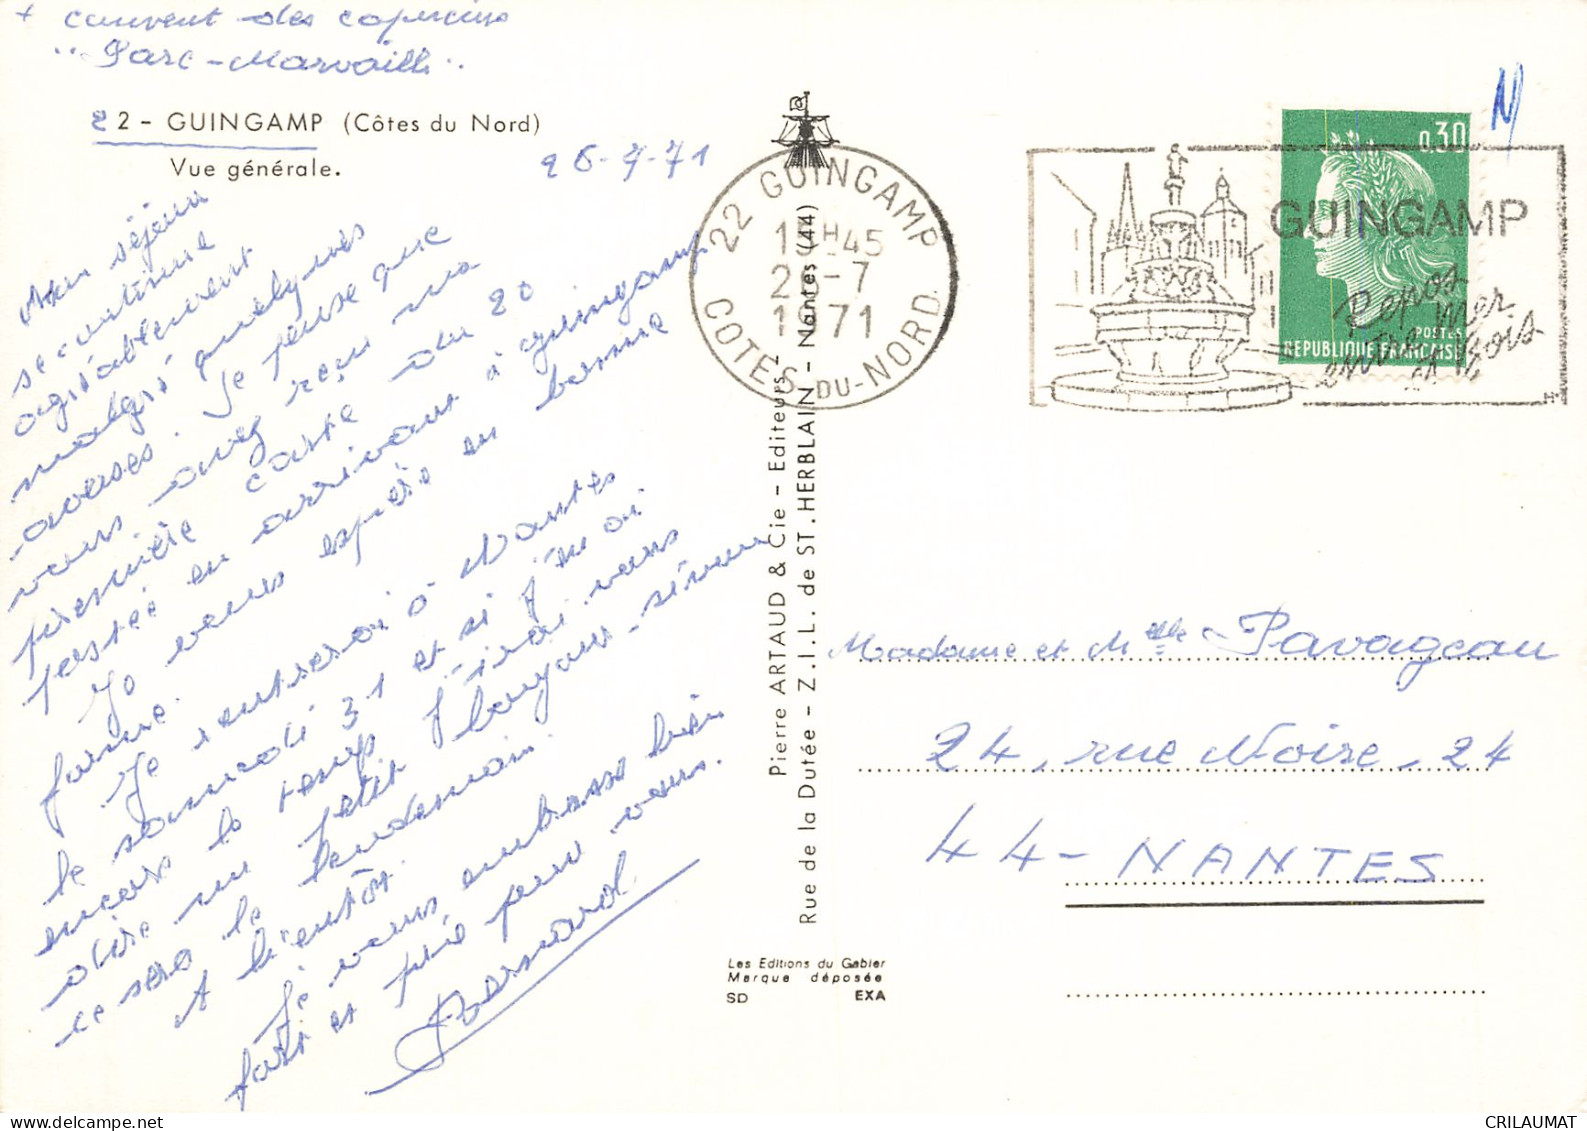 + couvent des capucins
"Parc-Marvaill"
22 - GUINGAMP (Côtes du Nord)
Vue générale.
26-7-71
Mon séjour
se continue
agréablement
malgré quelques
averses. Je pense que
vous avez reçu ma
première carte du 20
postée en arrivant à guingamp
Je vous espère en bonne
forme.
Je rentrerai à Nantes
le samedi 31 et si j'en ai
encore le temps j'irai vous
dire un petit bonjour, sinon
ce sera le lendemain.
A bientôt.
Je vous embrasse bien
fort et prie pour vous.
Bernard
Pierre ARTAUD & Cie - Editeurs
Rue de la Dutée - Z.I.L. de ST. HERBLAIN - Nantes (44)
Les Editions du Gabier
Marque déposée
SD EXA
22 GUINGAMP
15H45
26-7
1971
COTES-DU-NORD
GUINGAMP
Repos
entre Mer
et Bois
0,30
POSTES
REPUBLIQUE FRANCAISE
N
Madame et Mlle Pavageau
24, rue Noire, 24
44 - NANTES
CRILAUMAT